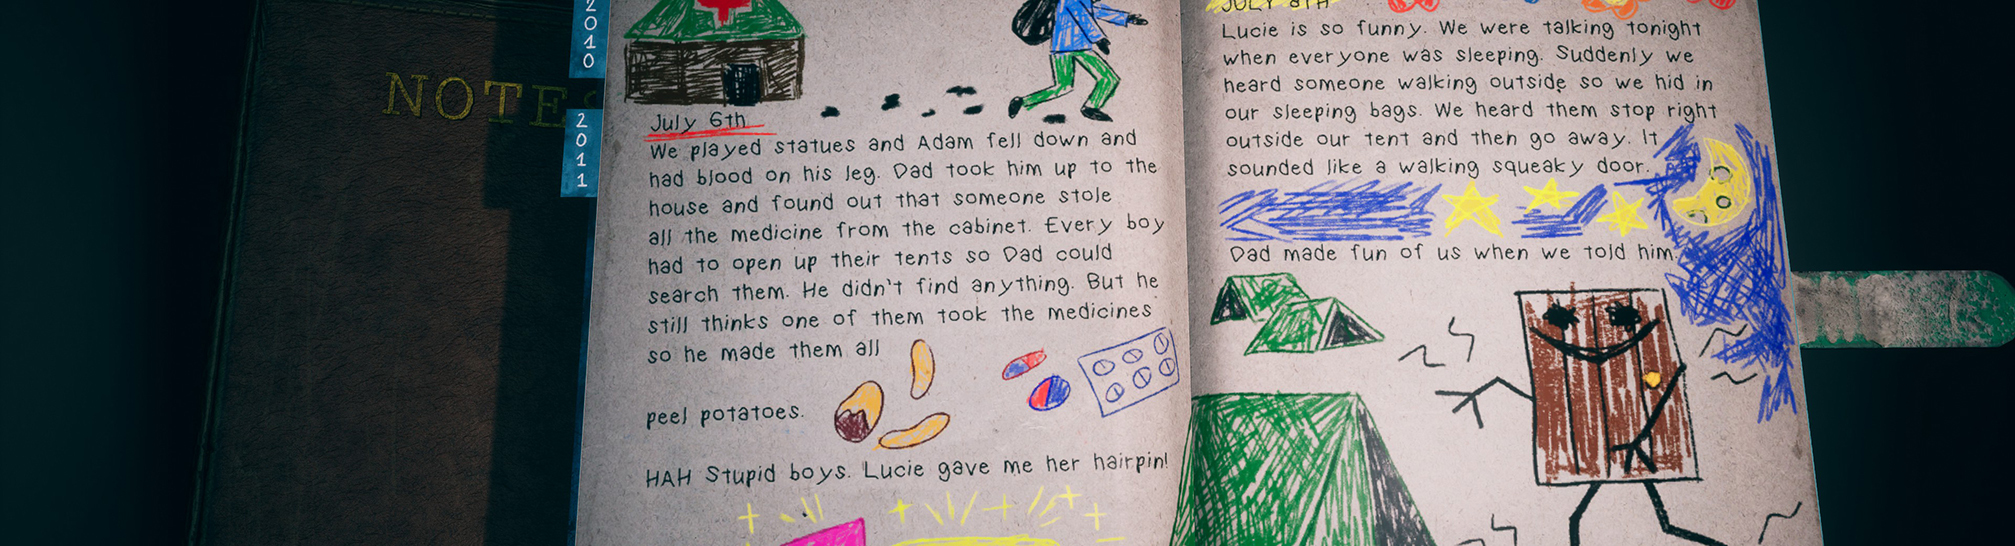 NOTE
2010
2011
July 6th
We played statues and Adam fell down and
had blood on his leg. Dad took him up to the
house and found out that someone stole
all the medicine from the cabinet. Every boy
had to open up their tents so Dad could
search them. He didn't find anything. But he
still thinks one of them took the medicines
so he made them all
peel potatoes.
HAH Stupid boys. Lucie gave me her hairpin!
JULY 8TH
Lucie is so funny. We were talking tonight
when everyone was sleeping. Suddenly we
heard someone walking outside so we hid in
our sleeping bags. We heard them stop right
outside our tent and then go away. It
sounded like a walking squeaky door.
Dad made fun of us when we told him.